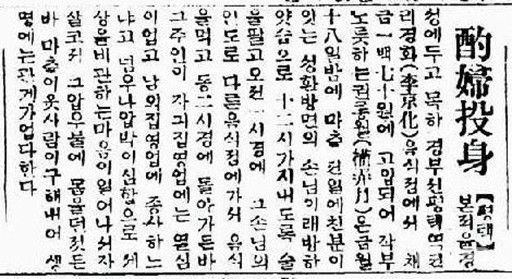 酌婦投身
【평택】 본적을경
성에두고 목하 경부선평택역전
리경화(李京化)음식점에서 채
금一백七十원에 고입되어 작부
노릇하는권롱월은금월
十八일밤에 마츰 전일에친분이
잇는 성환방면의 손님이래방하
얏슴으로 十二시가지내도록 술
을팔고오전一시경에 그손님의
인도로 다른음식점에가서 음식
을먹고 동二시경에 돌아가든바
그주인이 자긔집영업에는 열심
이업고 남의집영업에 종사하느
냐고 넘우나압박이심함으로 세
상을비관하는마음이일어나서자
살코저 그압우물에 몸을던젓든
바 마츰이웃사람이구해내어 생
명에는관계가업다한다